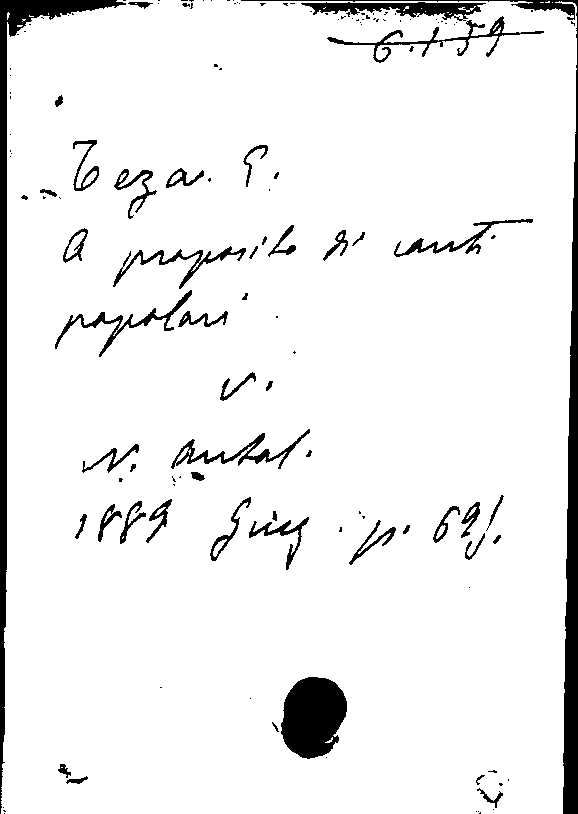 6.1.59
Teza. E.
A proposito di canti
popolari
V.
N. Antol.
1889 Giug. p. 691.